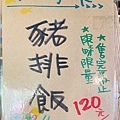 豬排飯
★售完為止
★限時限量
120元